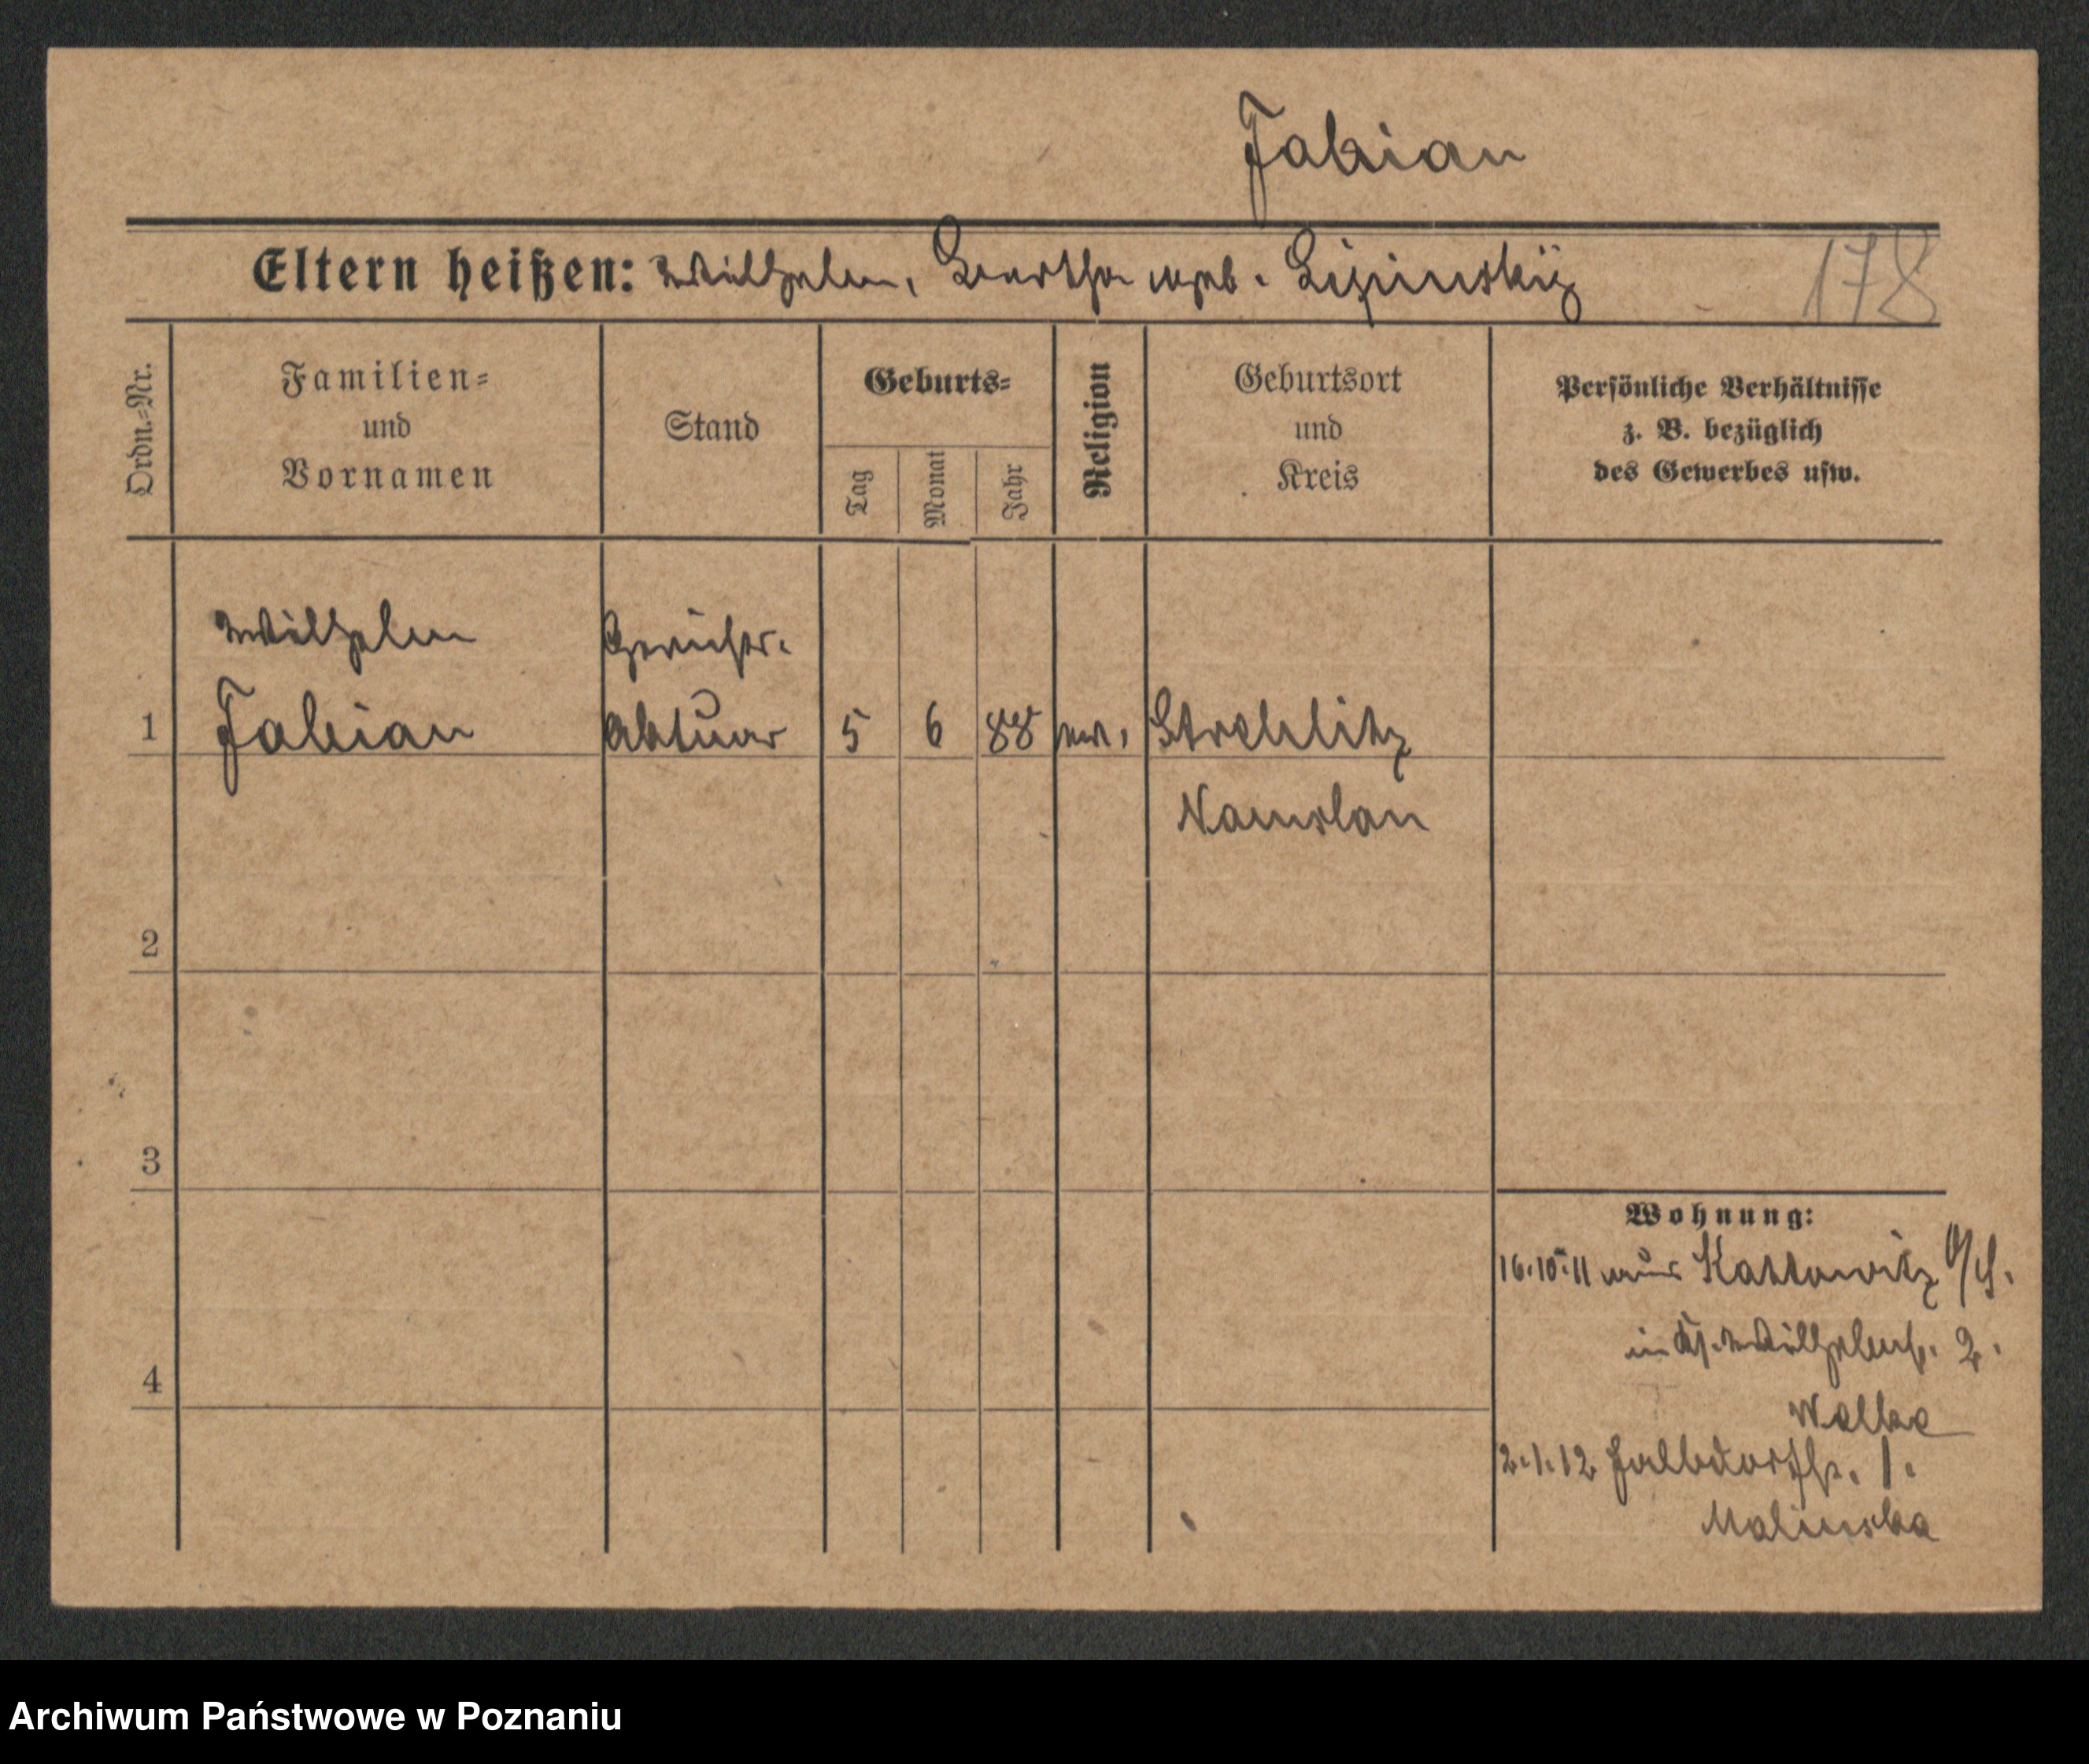 Fabian
Eltern heißen: Wilhelm, Bertha geb. Lipinski 178
Ordn.=Nr.
Familien=
und
Vornamen
Stand
Geburts=
Tag
Monat
Jahr
Religion
Geburtsort
und
Kreis
Persönliche Verhältnisse
z. B. bezüglich
des Gewerbes usw.
Wilhelm Gerichts.
1 Fabian Aktuar 5 6 88 ev. Strehlitz
Namslau
2
3
4
Wohnung:
16.10.11 aus Kattowitz O/S.
in Wilhelmstr. 2.
2.1.12 1.
Malinska
Archiwum Państwowe w Poznaniu